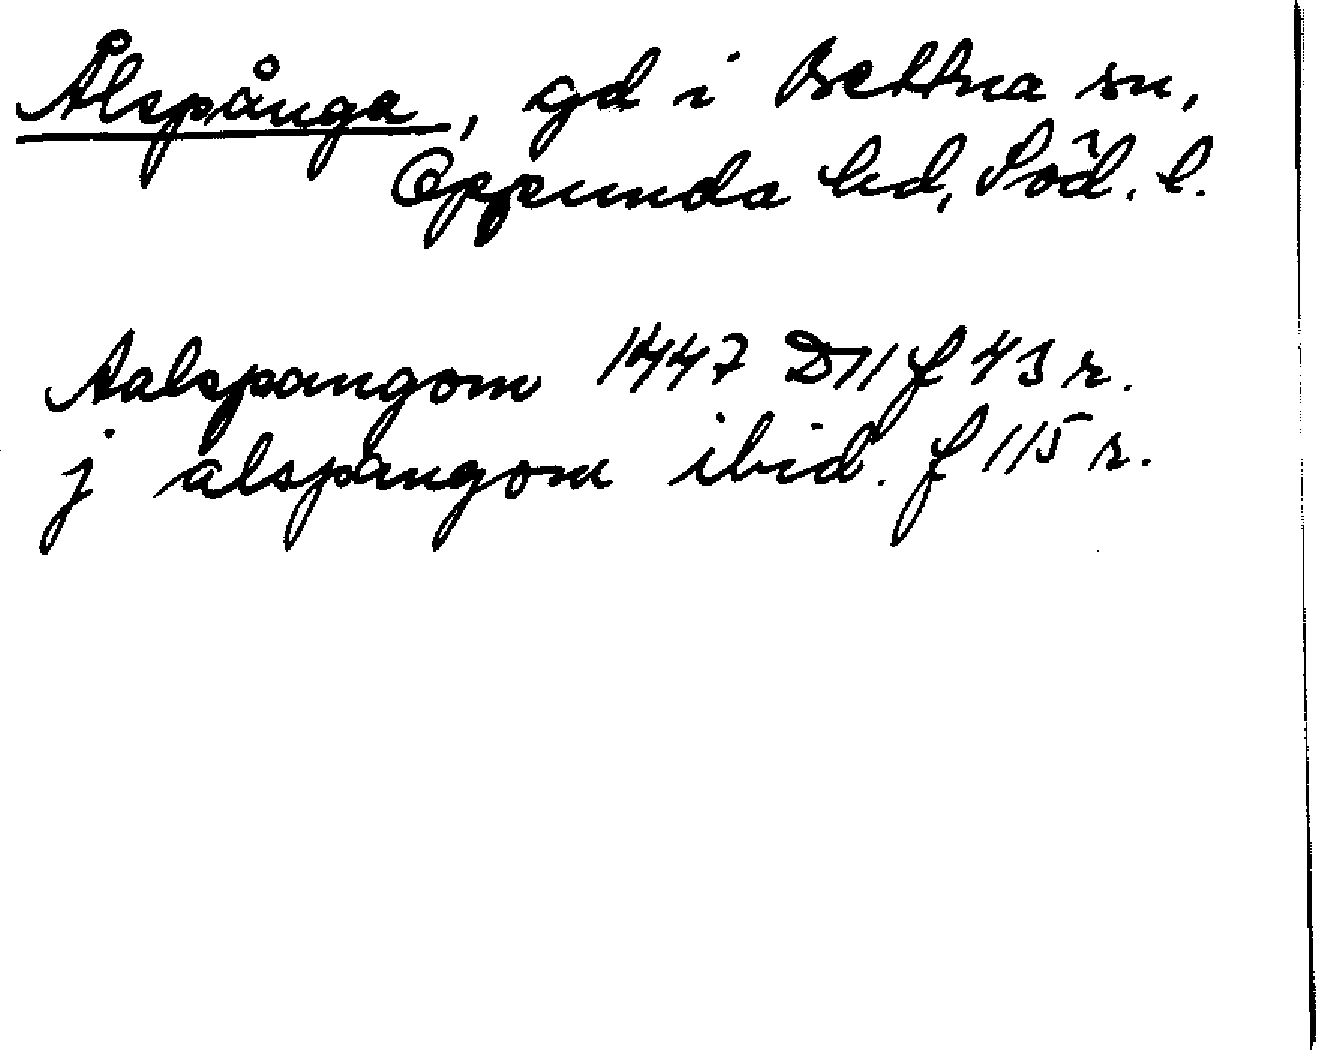 Ålspånga, gd i Bettna sn,
Oppunda hd, Söd. l.
Aalspangom 1447 D 11 f 43 r.
j alspangom ibid. f 115 r.